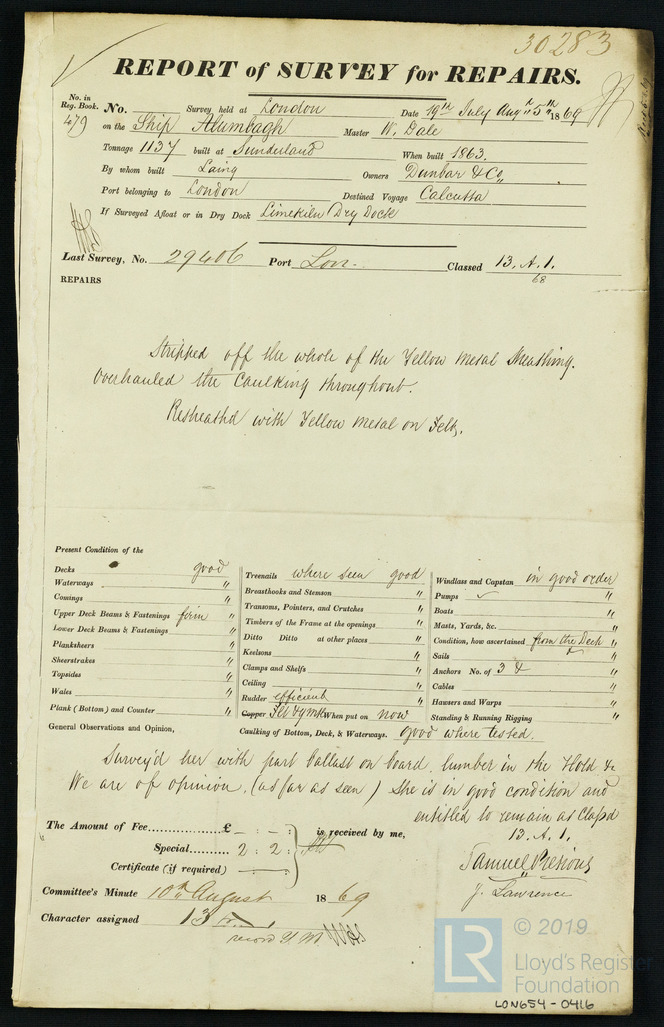 30283
REPORT of SURVEY for REPAIRS.
No. in Reg. Book. 479
No. Survey held at London Date 19th July Augt 5th 1869
on the Ship Alumbagh Master W. Dale
Tonnage 1137 built at Sunderland When built 1863.
By whom built Laing Owners Dunbar & Co,
Port belonging to London Destined Voyage Calcutta
If Surveyed Afloat or in Dry Dock Limekiln Dry Dock
Last Survey, No. 29406 Port Lon. Classed 13. A. 1.
68
REPAIRS
Stripped off the whole of the Yellow Metal Sheathing.
Overhauled the Caulking throughout.
Resheathd with Yellow Metal on Felt.
Present Condition of the
Decks good
Waterways "
Comings "
Upper Deck Beams & Fastenings firm "
Lower Deck Beams & Fastenings "
Planksheers "
Sheerstrakes "
Topsides "
Wales "
Plank (Bottom) and Counter "
General Observations and Opinion,
Treenails where seen good
Breasthooks and Stemson "
Transoms, Pointers, and Crutches "
Timbers of the Frame at the openings "
Ditto Ditto at other places "
Keelsons "
Clamps and Shelfs "
Ceiling "
Rudder efficient "
Copper When put on now
Caulking of Bottom, Deck, & Waterways. good where tested.
Windlass and Capstan in good order
Pumps "
Boats "
Masts, Yards, &c. "
Condition, how ascertained from the Deck "
Sails "
Anchors No. of 3 & "
Cables "
Hawsers and Warps "
Standing & Running Rigging "
Survey'd her with part ballast on board. lumber in the Hold &
We are of opinion, (as far as seen) she is in good condition and
entitled to remain as Class'd
13. A. 1.
The Amount of Fee £ - : - : is received by me,
Special 2 : 2 :
Certificate (if required) - : - :
Samuel Presious
J. Lawrence
Committee's Minute 10th August 1869
Character assigned 13 A 1
record Y M
© 2019
LR
Lloyd's Register
Foundation
LON654-0416